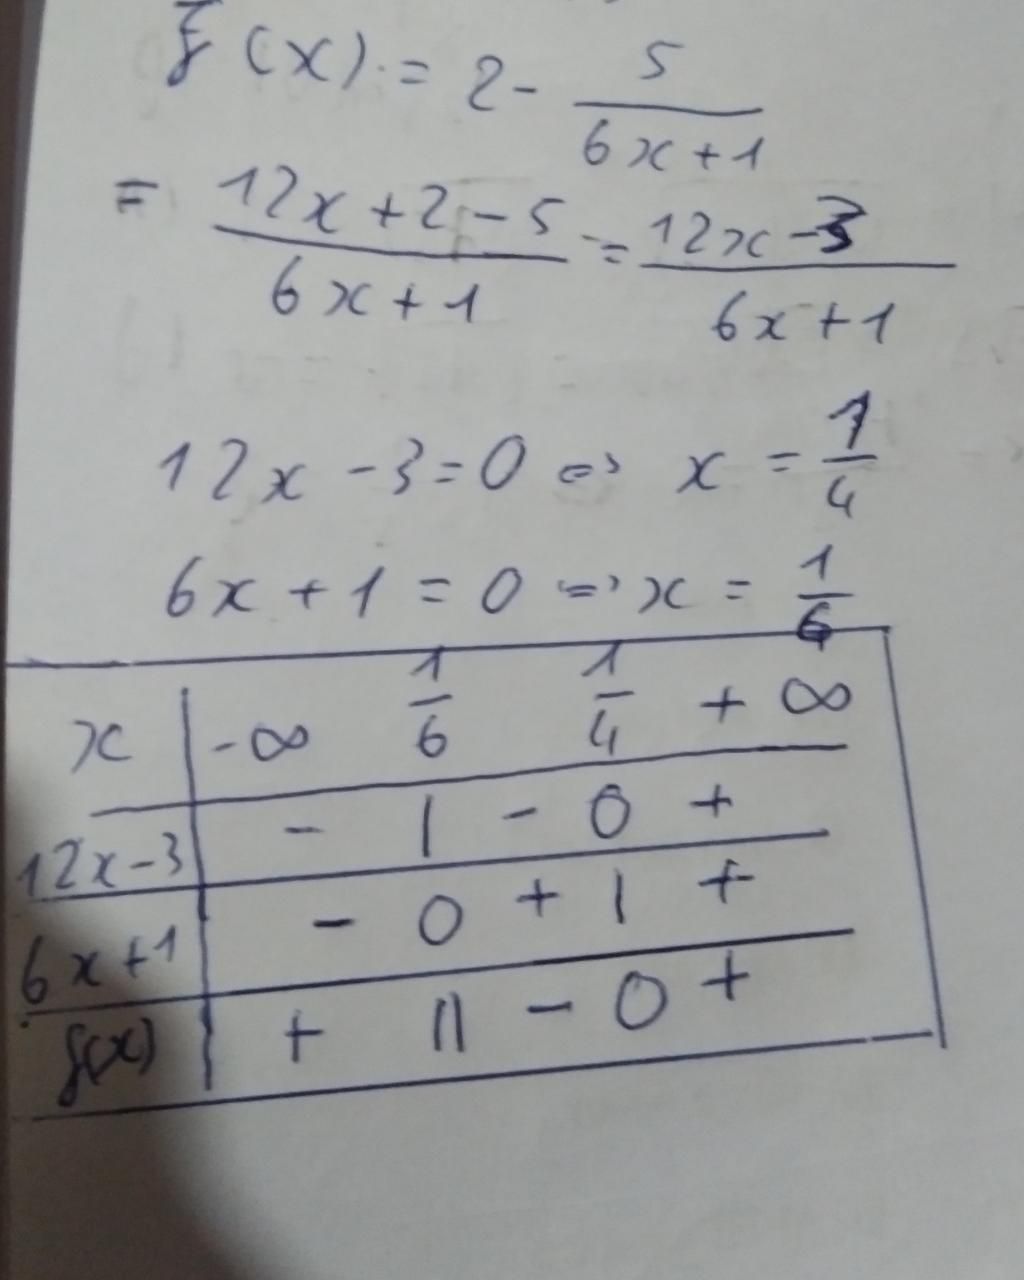 f(x) = 2 - 5/(6x+1)
= (12x+2-5)/(6x+1) = (12x-3)/(6x+1)
12x - 3 = 0 ⇔ x = 1/4
6x + 1 = 0 ⇔ x = 1/6
x | -∞ 1/6 1/4 +∞
12x-3 | - | - 0 +
6x+1 | - 0 + | +
f(x) | + || - 0 +